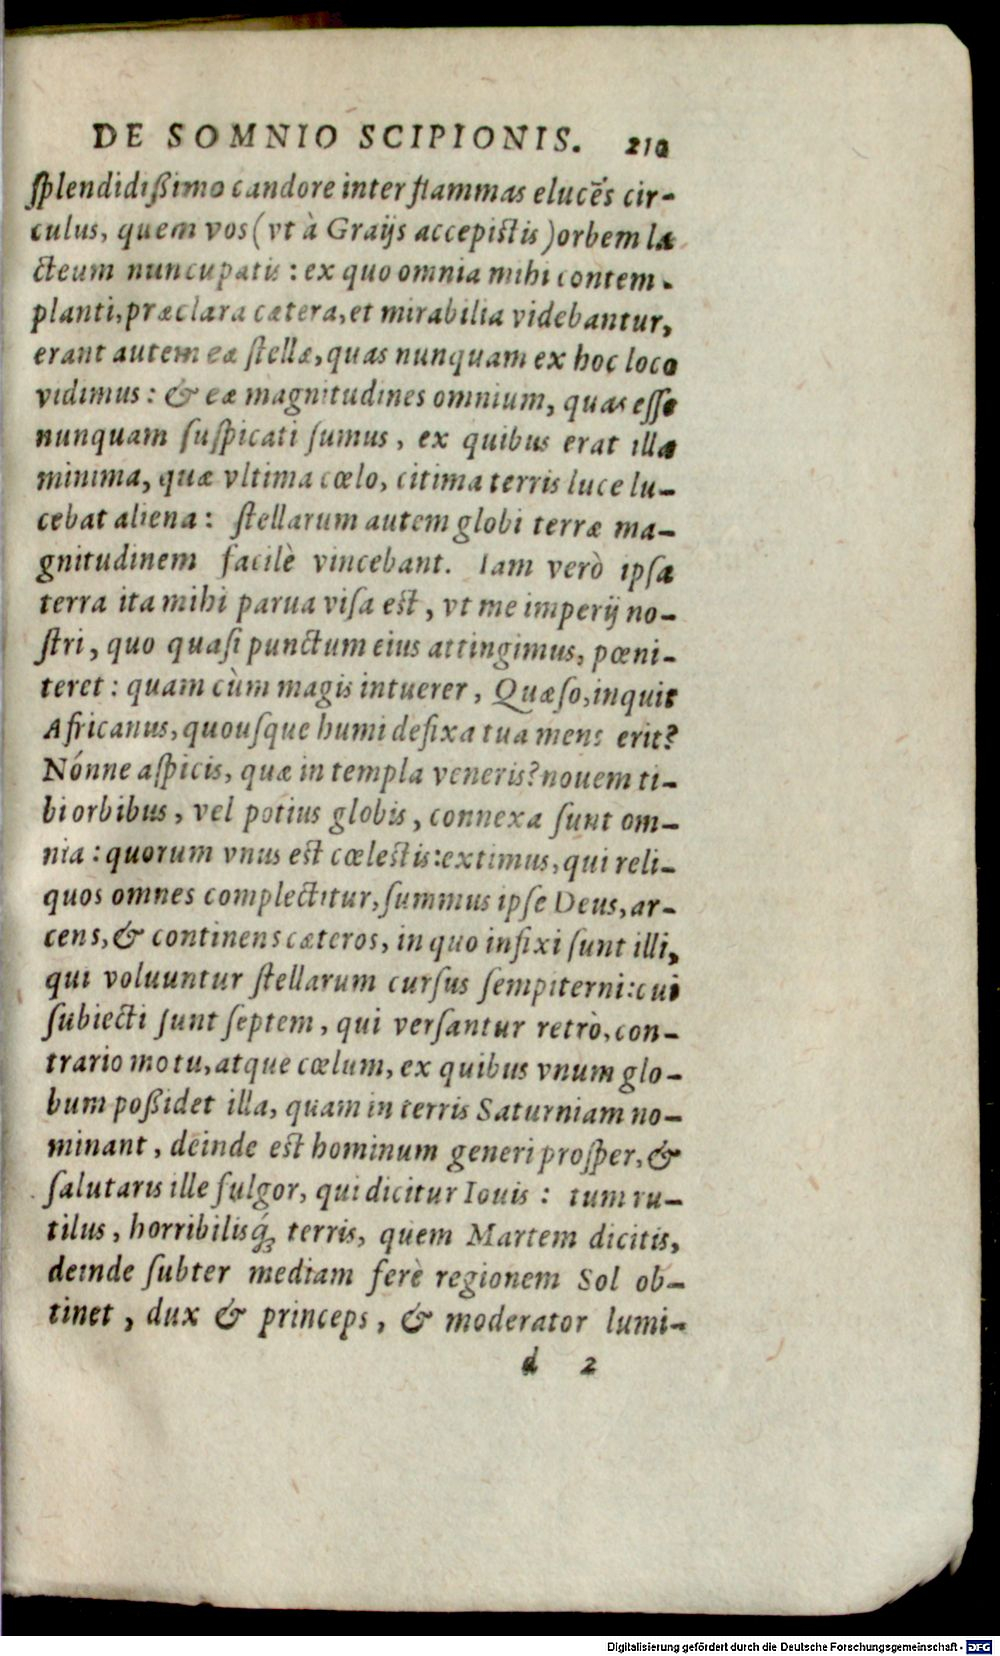 DE SOMNIO SCIPIONIS. 210
ſplendidißimo candore inter flammas elucẽs cir-
culus, quem vos (vt à Graijs accepistis) orbem la
cteum nuncupatis : ex quo omnia mihi contem-
planti, præclara cætera, et mirabilia videbantur,
erant autem eæ ſtellæ, quas nunquam ex hoc loco
vidimus : & eæ magnitudines omnium, quas eſſe
nunquam ſuſpicati ſumus, ex quibus erat illa
minima, quæ vltima cœlo, citima terris luce lu-
cebat aliena : ſtellarum autem globi terræ ma-
gnitudinem facilè vincebant. Iam verò ipſa
terra ita mihi parua viſa est, vt me imperij no-
ſtri, quo quaſi punctum eius attingimus, pœni-
teret : quam cùm magis intuerer, Quæſo, inquit
Africanus, quouſque humi defixa tua mens erit?
Nónne aſpicis, quæ in templa veneris? nouem ti-
bi orbibus, vel potius globis, connexa ſunt om-
nia : quorum vnus est cœlestis: extimus, qui reli-
quos omnes complectitur, ſummus ipſe Deus, ar-
cens, & continens cæteros, in quo infixi ſunt illi,
qui voluuntur ſtellarum curſus ſempiterni: cui
ſubiecti ſunt ſeptem, qui verſantur retrò, con-
trario motu, atque cœlum, ex quibus vnum glo-
bum poßidet illa, quam in terris Saturniam no-
minant, deinde est hominum generi proſper, &
ſalutaris ille fulgor, qui dicitur Iouis : tum ru-
tilus, horribilisq́; terris, quem Martem dicitis,
deinde ſubter mediam ferè regionem Sol ob-
tinet, dux & princeps, & moderator lumi-
d 2
Digitalisierung gefördert durch die Deutsche Forschungsgemeinschaft - DFG